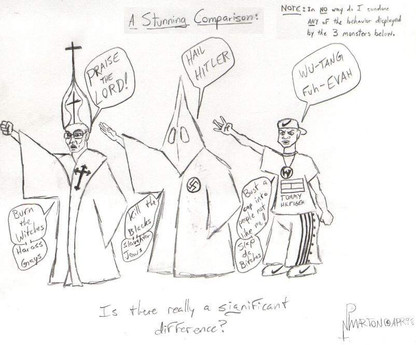 A Stunning Comparison:
NOTE: In NO way do I condone
ANY of the behavior displayed
by the 3 monsters below.
PRAISE
THE
LORD!
HAIL
HITLER
WU-TANG
Fuh-EVAH
Burn
the
Witches
Gays
Kill the
Blacks
Jews
Bust a
cap in a
people not
like me!
Slap
da
Bitches
TOMMY
HILFIGER
Is there really a significant
difference?